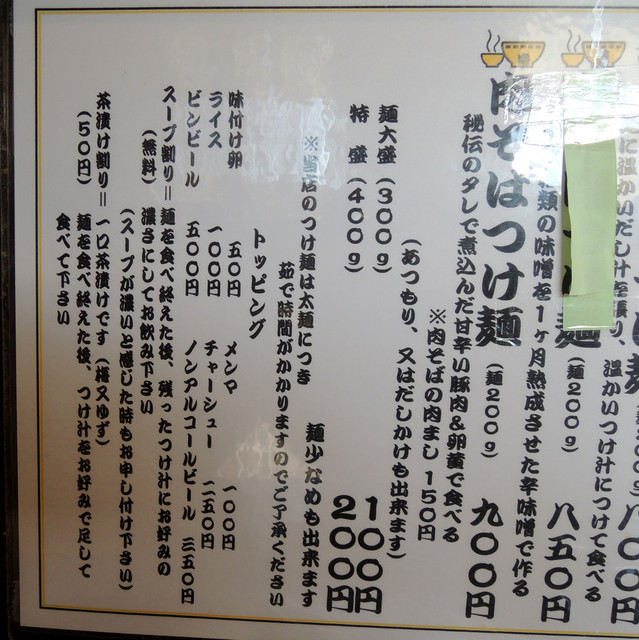 に温かいだし汁を張り、温かいつけ汁につけて食べる
麺
(麺200g)
八五〇円
類の味噌を1ヶ月熟成させた辛味噌で作る
肉そばつけ麺
(麺200g)
九〇〇円
秘伝のタレで煮込んだ甘辛い豚肉&卵黄で食べる
※肉そばの肉まし 150円
(あつもり、又はだしかけも出来ます)
麺大盛(300g)
100円
特 盛(400g)
200円
麺少なめも出来ます
※当店のつけ麺は太麺につき
茹で時間がかかりますのでご了承ください
トッピング
味付け卵 五〇円 メンマ 一〇〇円
ライス 一〇〇円 チャーシュー 二五〇円
ビンビール 五〇〇円 ノンアルコールビール 三五〇円
スープ割り=麺を食べ終えた後、残ったつけ汁にお好みの
(無料) 濃さにしてお飲み下さい
(スープが濃いと感じた時もお申し付け下さい)
茶漬け割り=一口茶漬けです(梅又ゆず)
(50円) 麺を食べ終えた後、つけ汁をお好みで足して
食べて下さい